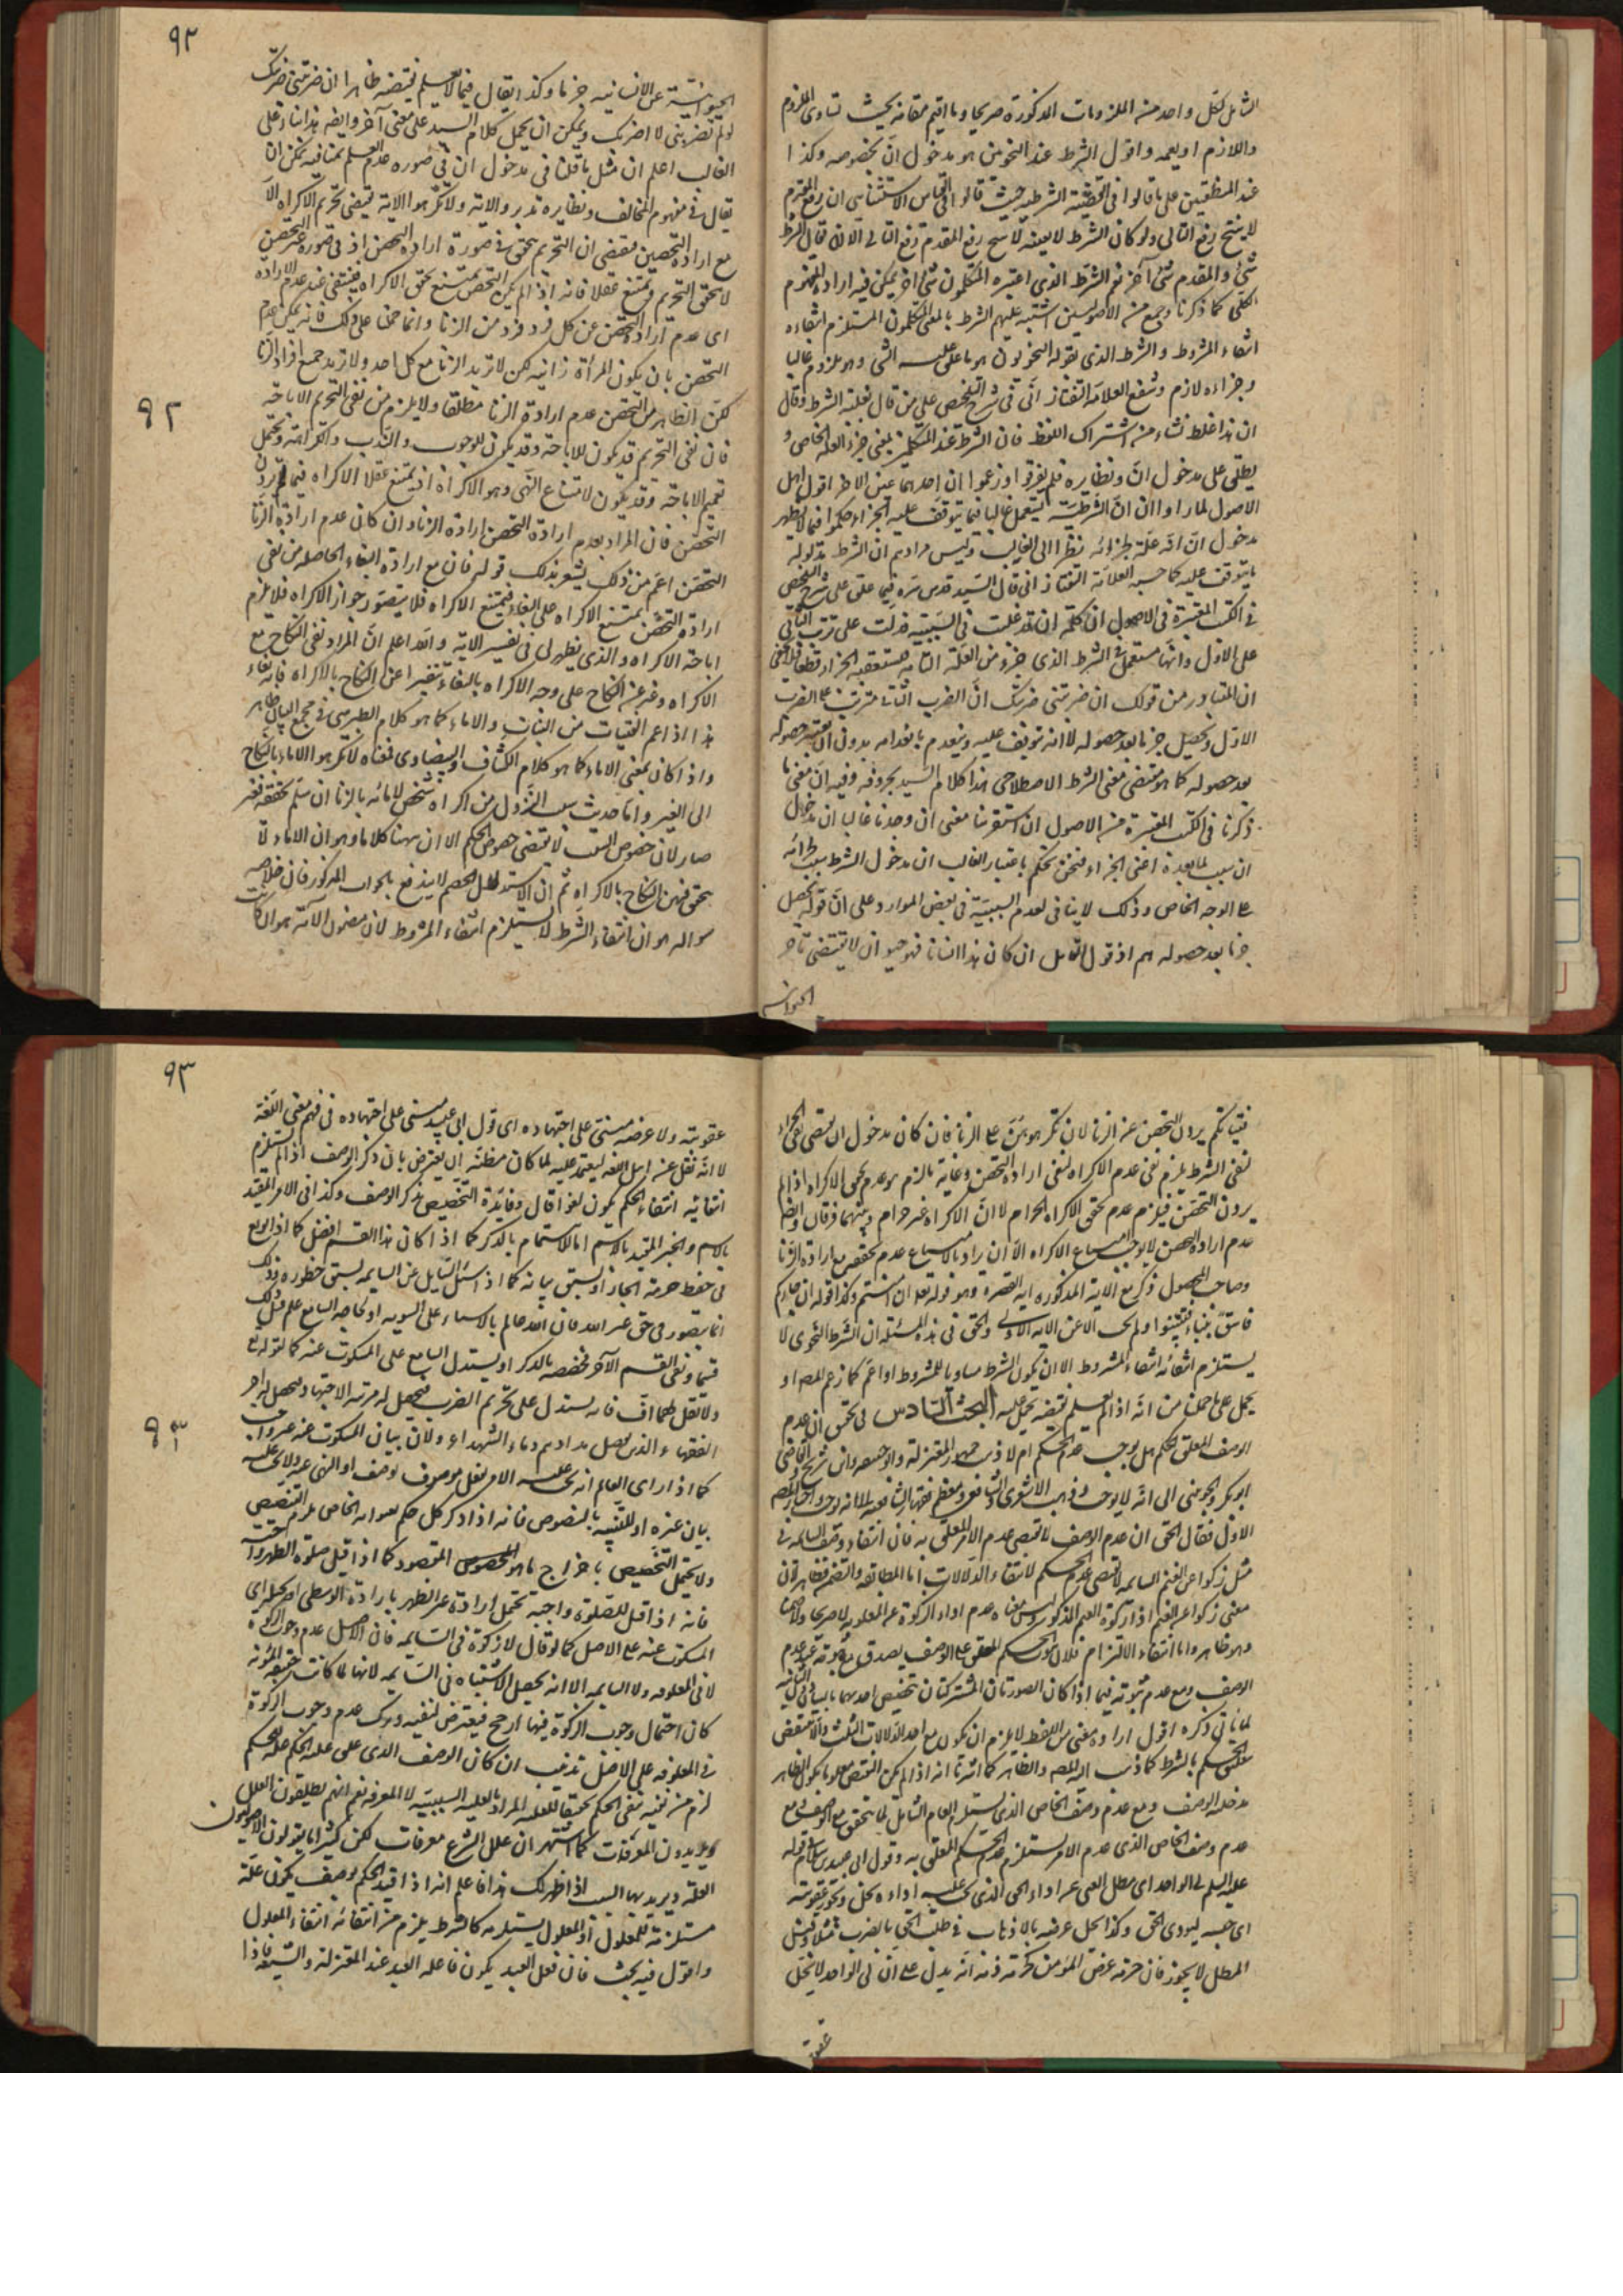 الشامل لكل واحد من الملزومات المذكورة صريحا وما اقيم مقامه بحيث تساوى الملزوم
واللازم او يعمه واقول الشرط عند النحويين هو مدخول ان بخصوصه وكذا
عند المنطقيين على ما قالوا فى القضية الشرطية حيث قالوا فى القياس الاستثنائى ان رفع المقدم
لا ينتج رفع التالى ولو كان الشرط لا ينتج رفع المقدم رفع التالى الا ان يقال الشرط
شئ والمقدم شئ آخر نعم الشرط الذى اعتبره المتكلمون شئ آخر يمكن فيه ارادة الملزوم
كما ذكرنا وجمع من الاصوليين اشتبه عليهم الشرط بالمعنى المتكلمون المستلزم انتفاءه
انتفاء المشروط والشرط الذى يقوله النحويون هو ما علق عليه الشئ وهو ملزوم غالبا
وجزاءه لازم وشنع العلامة التفتازانى فى شرح على من قال بعلية الشرط وقال
ان هذا غلط نشاء من اشتراك اللفظ فان الشرط عند المتكلمين بمعنى جزء العلة الخاص و
يطلق على مدخول ان ونظايره فلم يفرقوا وزعموا ان احدهما عين الاخر اقول اهل
الاصول لما راوا ان ان الشرطية يستعمل غالبا فيما يتوقف عليه الجزاء حكموا فيما لا يظهر
مدخول ان انه علة لجزائه نظرا الى الغالب وليس مرادهم ان الشرط مدلوله
ما يتوقف عليه كما حسبه العلامة التفتازانى قال السيد قدس سره فيما علق على شرح
فى الكتب المعتبرة فى الاصول ان كلمة ان قد غلبت فى السببية فدلت على ترتب الثانى
على الاول وانها مستعمل فى الشرط الذى جزء من العلة التامة فيستعقبه الجزاء قطعا فلا يخفى
ان المتبادر من قولك ان ضربتنى ضربتك ان الضرب الثانى مترتب على الضرب
الاول ويحصل جزما بعد حصوله لا انه توقف عليه وينعدم بانعدامه بدون ان يعتبر حصوله
بعد حصوله كما هو مقتضى معنى الشرط الاصطلاحى هذا كلام السيد بحروفه وفيه ان معنى ما
ذكرنا فى الكتب المعتبرة من الاصول ان استقرينا معنى ان وجدنا غالبا ان مدخول
ان سبب لما بعده اعنى الجزاء فنحن نحكم باعتبار الغالب ان مدخول الشرط سبب لجزائه
على الوجه الخاص وذلك لا ينافى لعدم السببية فى بعض الموارد وعلى ان قوله يحصل
جزما بعد حصوله هم اذ قول القائل ان كان هذا انسانا فهو حيوان لا يقتضى تاخر
الحيوانية
٩٢
الحيوانية عن الانسانية جزما وكذا يقال فيما لا يعلم نقيضه ظاهرا ان ضربتنى ضربتك
لو لم تضربنى لا اضربك ويمكن ان يحمل كلام السيد على معنى آخر وايضه هذا بناء على
الغالب اعلم ان مثل ما قلنا فى مدخول ان فى صورة عدم العلم بمنافيه يمكن ان
يقال فى مفهوم المخالف ونظايره تدبر والاية ولا تكرهوا الاية يقتضى تحريم الاكراه الا
مع ارادة التحصن فمقتضى ان التحريم يتحقق فى صورة ارادة التحصن اذ فى صورة غير التحصن
لا يتحقق التحريم ويمتنع عقلا فانه اذا لم يكن التحصن يمتنع تحقق الاكراه فينتفى عند عدم الارادة
اى عدم ارادة التحصن عن كل فرد فرد من الزنا وانما حملنا على ذلك فانه يمكن عدم
التحصن بان يكون المراة زانية لكن لا تريد الزنا مع كل احد ولا تريد جميع افراد الزنا
لكن الظاهر من التحصن عدم ارادة الزنا مطلقا ولا يلزم من نفى التحريم الاباحة
٩٢
فان نفى التحريم قد يكون للاباحة وقد يكون للوجوب والندب والكراهة ويحتمل
تعميم الاباحة وقد يكون لامتناع النهى وهو الاكراه اذ يمتنع عقلا الاكراه فيما يردن
التحصن فان المراد بعدم ارادة التحصن ارادة الزنا وان كان عدم ارادة الزنا
التحصن اعم من ذلك يشعر بذلك قوله فان مع ارادة البغاء الحاصلة من نفى
ارادة التحصن يمتنع الاكراه على البغاء فيمتنع الاكراه فلا يتصور جواز الاكراه فلا يلزم
اباحة الاكراه والذى يظهر لى فى تفسير الاية والله اعلم ان المراد نفى النكاح مع
الاكراه وعبر عن النكاح على وجه الاكراه بالبغاء تنفيرا عن النكاح بالاكراه فانه بغاء
هذا اذا عم الفتيات من البنات والاماء كما هو كلام الطبرسى فى مجمع البيان
واذا كان بمعنى الاماء كما هو كلام الكشاف والبيضاوى فمعناه لا تكرهوا الاماء بالنكاح
الى الغير واما حديث سبب النزول من اكراه شخص لامائه بالزنا ان سلم تحققه فغير
صار لان خصوص السبب لا يقتضى خصوص الحكم الا ان ههنا كلاما وهو ان الاماء لا
يتحقق فيهن النكاح بالاكراه ثم ان استدلال الخصم لا يندفع بالجواب المذكور فان خلاصة
سواله هو ان انتفاء الشرط لا يستلزم انتفاء المشروط لان مضمون الآية هو ان كانت
فتياتكم يردن التحصن عن الزنا لان تكرهوهن على الزنا فان كان مدخول ان يقتضى نفى الجزاء
لنفى الشرط يلزم نفى عدم الاكراه لنفى ارادة التحصن وغاية ما لزم هو عدم تحقق الاكراه اذا لم
يردن التحصن فيلزم عدم تحقق الاكراه الحرام لا ان الاكراه غير حرام وبينهما فرقان وايضه
عدم ارادة التحصن لا يوجب امتناع الاكراه الا ان يراد بالامتناع عدم تحققه مع ارادة الزنا
وصاحب المحصول ذكر مع الاية المذكورة اية القصر وهو قوله تعالى ان خفتم وكذا قوله ان جاءكم
فاسق بنباء فتبينوا ولم يجب الا عن الاية الاولى والحق فى هذه المسئلة ان الشرط النحوى لا
يستلزم انتفائه انتفاء المشروط الا ان يكون الشرط مساويا للمشروط او اعم كما زعم المصنف او
يحمل على ما حملنا من انه اذا لم يعلم نقيضه يحمل عليه البحث السادس فى تحقق ان عدم
الوصف المعلق للحكم هل يوجب عدم الحكم ام لا ذهب جمهور المعتزلة وابو حنيفة وابن شريح والقاضى
ابو بكر والجوينى الى انه لا يوجب وذهب الاشعرى والشافعى ومعظم فقهاء الشافعية الى انه يوجب واختار المصنف
الاول فقال الحق ان عدم الوصف لا يقتضى عدم الامر المعلق به فان انتفاء وصف السائمة فى
مثل زكوا عن الغنم السائمة لا يقتضى عدم الحكم لانتفاء الدلالات اما المطابقة والتضمن فظاهر فان
معنى زكوا عن الغنم اذ آتوا زكوة الغنم المذكور وليس معناه عدم اداء الزكوة عن المعلوفة لا صريحا ولا ضمنا
وهو ظاهر واما انتفاء الالتزام فلان ثبوت الحكم المعلق على الوصف يصدق مع ثبوته عند عدم
الوصف ومع عدم ثبوته فيما اذا كان الصورتان المشتركتان تخصيص احدهما بالبيان دون الثانية
لما ياتى ذكره اقول ارادة معنى من اللفظ لا يلزم ان يكون مع احد الدلالات الثلث والا لانتقض
تعلق الحكم بالشرط كما ذهب اليه المصنف والظاهر كما اشرنا انه اذا لم يكن النقيض معلوما يكون الظاهر
مدخلية الوصف ومع عدم وصف الخاص الذى يستلزم العام الشامل لما يتحقق مع الوصف ومع
عدم وصف الخاص الذى عدم الامر يستلزم عدم الحكم المعلق به وقول ابى عبيدة فى قوله
عليه السلم لى الواجد اى مطل الغنى عن اداء الحق الذى يجب عليه اداءه يحل ويجوز عقوبته
اى حبسه ليودى الحق وكذا يحل عرضه بالاذهاب فى طلب الحق بالضرب مثلا وقيل
المطل لا يجوز فان حرمة عرض المؤمن كحرمة دمه انه يدل على ان لى الواجد لا يحل
عقوبته
٩٣
عقوبته ولا عرضه مبنى على اجتهاده اى قول ابى عبيد مبنى على اجتهاده فى فهم معنى اللغة
لا انه نقل عن اهل اللغة ليعتمد عليه لما كان مظنة ان يعترض بان ذكر الوصف اذا لم يستلزم
انتفائه انتفاء الحكم يكون لغوا قال وفايدة التخصيص بذكر الوصف وكذا فى الامر المقيد
بالاسم والخبر المقيد بالاسم اما لاهتمام بالذكر كما اذا كان هذا القسم افضل كما اذا وقع
فى حفظ حرمة الجار او لسبق بيانه كما اذا سئل السائل عن السايمة لسبق خطوره وذلك
انما يتصور فى حق غير الله فان الله عالم بالاشياء على السوية او لحاجة السامع علم قبل ذلك
قسما ونفى القسم الآخر فخصصه بالذكر او يستدل السامع على المسكوت عنه كما قوله تعالى
ولا تقل لهما اف فانه يستدل على تحريم الضرب فيحصل له مرتبة الاجتهاد ويحصل له اجر
٩٣
الفقهاء الذين يفضل مدادهم دماء الشهداء ولان بيان المسكوت عنه غير واجب
كما اذا راى العالم انه يجب عليه الامر بفعل موصوف بوصف او النهى عنه ولا يجب عليه
بيان غيره او للتنبيه بالنصوص فانه اذا ذكر كل حكم بعنوانه الخاص لم يلزم التخصيص
ولا يحتمل التخصيص باخراج ما هو المخصوص المقصود كما اذا قيل صلوة الظهر واجبة
فانه اذا قيل للصلوة واجبة تحتمل ارادة غير الظهر بارادة الوسطى او يحيل اى
المسكوت عنه على الاصل كما لو قال لا زكوة فى السايمة فان الاصل عدم وجوب الزكوة
لا فى المعلوفة ولا السايمة الا انه يحصل الاشتباه فى السايمة لانها لما كانت خفيفة المؤنة
كان احتمال وجوب الزكوة فيها ارجح فيتعرض لنفيه وترك عدم وجوب الزكوة
فى المعلوفة على الاصل تذنيب ان كان الوصف الذى علق عليه الحكم علة للحكم
لزم من نفيه نفى الحكم تحقيقا للعلية المراد بالعلية السببية لا المعرف نعم انهم يطلقون العلل
ويريدون المعرفات كما اشتهر ان علل الشرع معرفات لكن كثيرا ما يقولون الاصوليون
العلة ويريد بها السبب اذا ظهر لك هذا فاعلم انه اذا قيد الحكم بوصف يكون علة
مستلزمة للمعلول او المعلول يستلزمه كالشرط يلزم من انتفائه انتفاء المعلول
واقول فيه بحث فان فعل العبد يكون فاعله العبد عند المعتزلة والشيعة فاذا